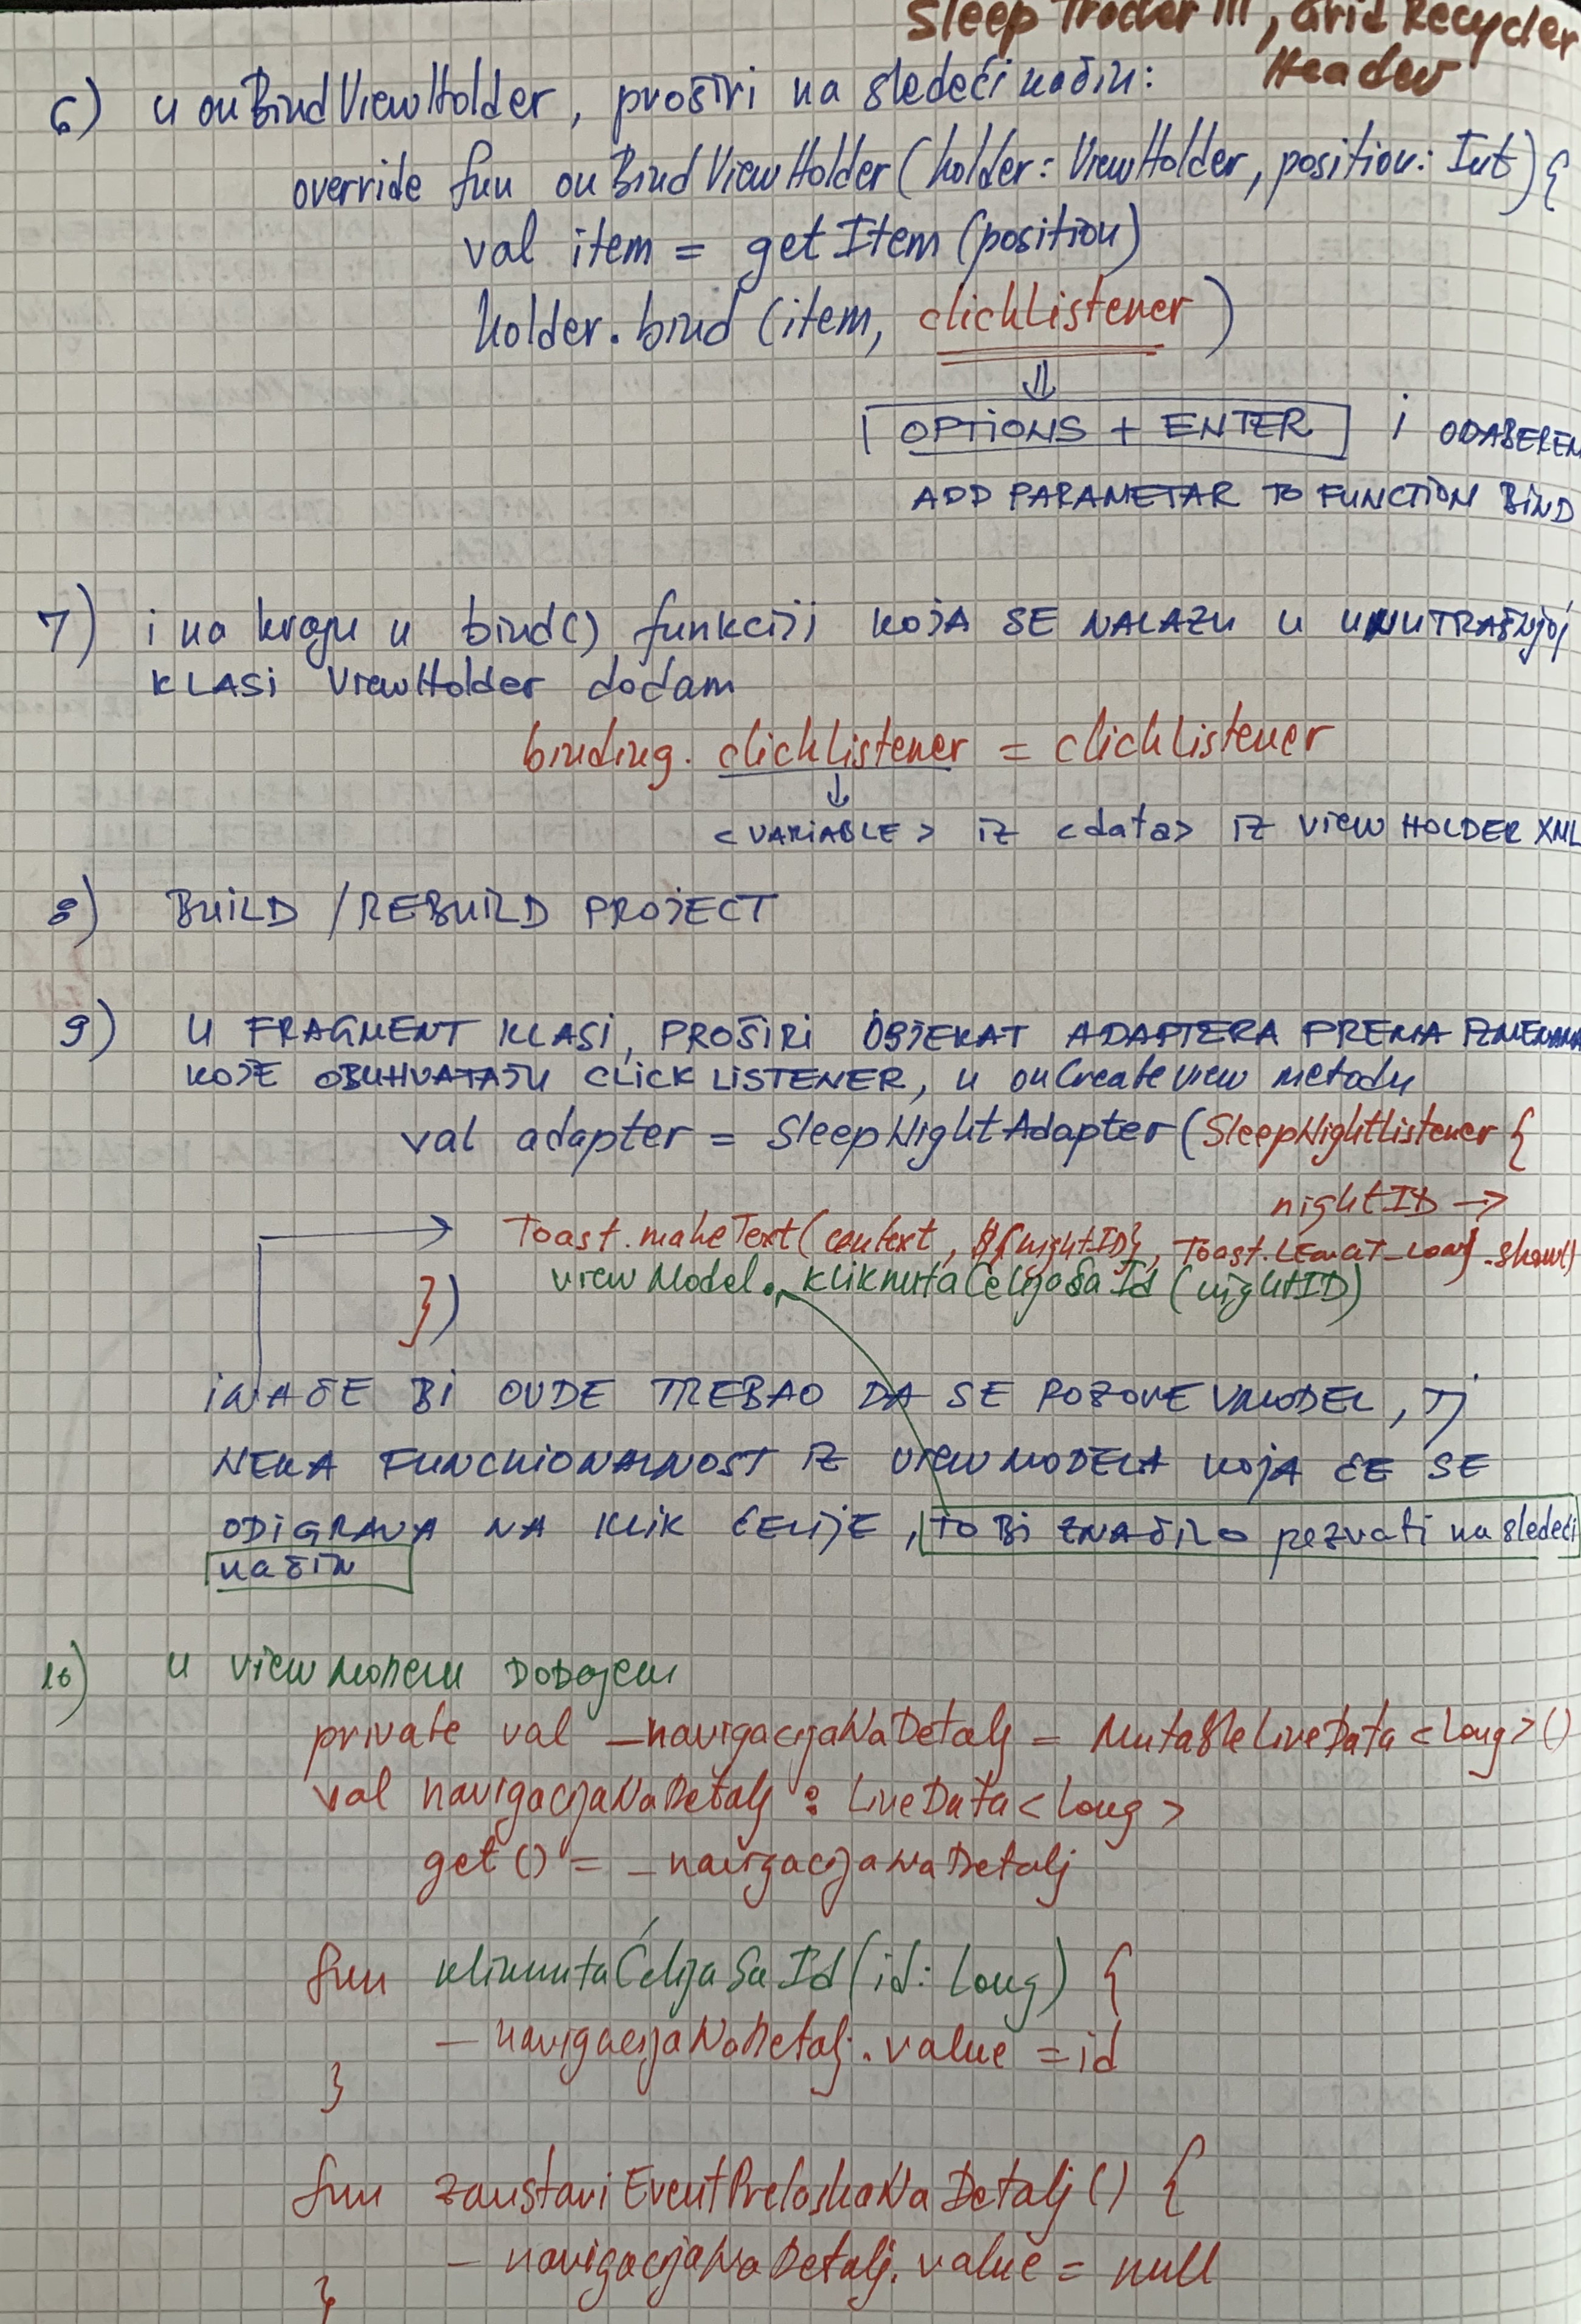 Sleep Tracker III, Grid Recycler
Header
6) u onBindViewHolder, proširi na sledeći način:
override fun onBindViewHolder(holder: ViewHolder, position: Int) {
val item = getItem(position)
holder.bind(item, clickListener)
⇓
OPTIONS + ENTER i ODABEREM
ADD PARAMETAR TO FUNCTION BIND
7) i na kraju u bind() funkciji KOJA SE NALAZU U UNUTRAŠNJOJ
KLASI ViewHolder dodam
binding.clickListener = clickListener
↓
<VARIABLE> iz <data> iz VIEW HOLDER XML
8) BUILD / REBUILD PROJECT
9) U FRAGMENT KLASI, PROŠIRI OBJEKAT ADAPTERA PREMA IZMENAMA
KOJE OBUHVATAJU CLICK LISTENER, u onCreateView metodu
val adapter = SleepNightAdapter(SleepNightListener {
nightID →
→ Toast.makeText(context, ${nightID}, Toast.LENGHT_LONG).show()
viewModel.kliknutaĆelijaSaId(nightID)
})
INAČE BI OVDE TREBAO DA SE POZOVE VMODEL, TJ
NEKA FUNCKIONALNOST IZ VIEWMODELA KOJA ĆE SE
ODIGRAVA NA KLIK ĆELIJE, TO BI ZNAČILO pozvati na sledeći
način
10) u viewModelu DODAJEM
private val _navigacijaNaDetalj = MutableLiveData<Long>()
val navigacijaNaDetalj : LiveData<Long>
get() = _navigacijaNaDetalj
fun kliknutaĆelijaSaId(id: Long) {
_navigacijaNaDetalj.value = id
}
fun zaustaviEventPrelaskaNaDetalj() {
_navigacijaNaDetalj.value = null
}